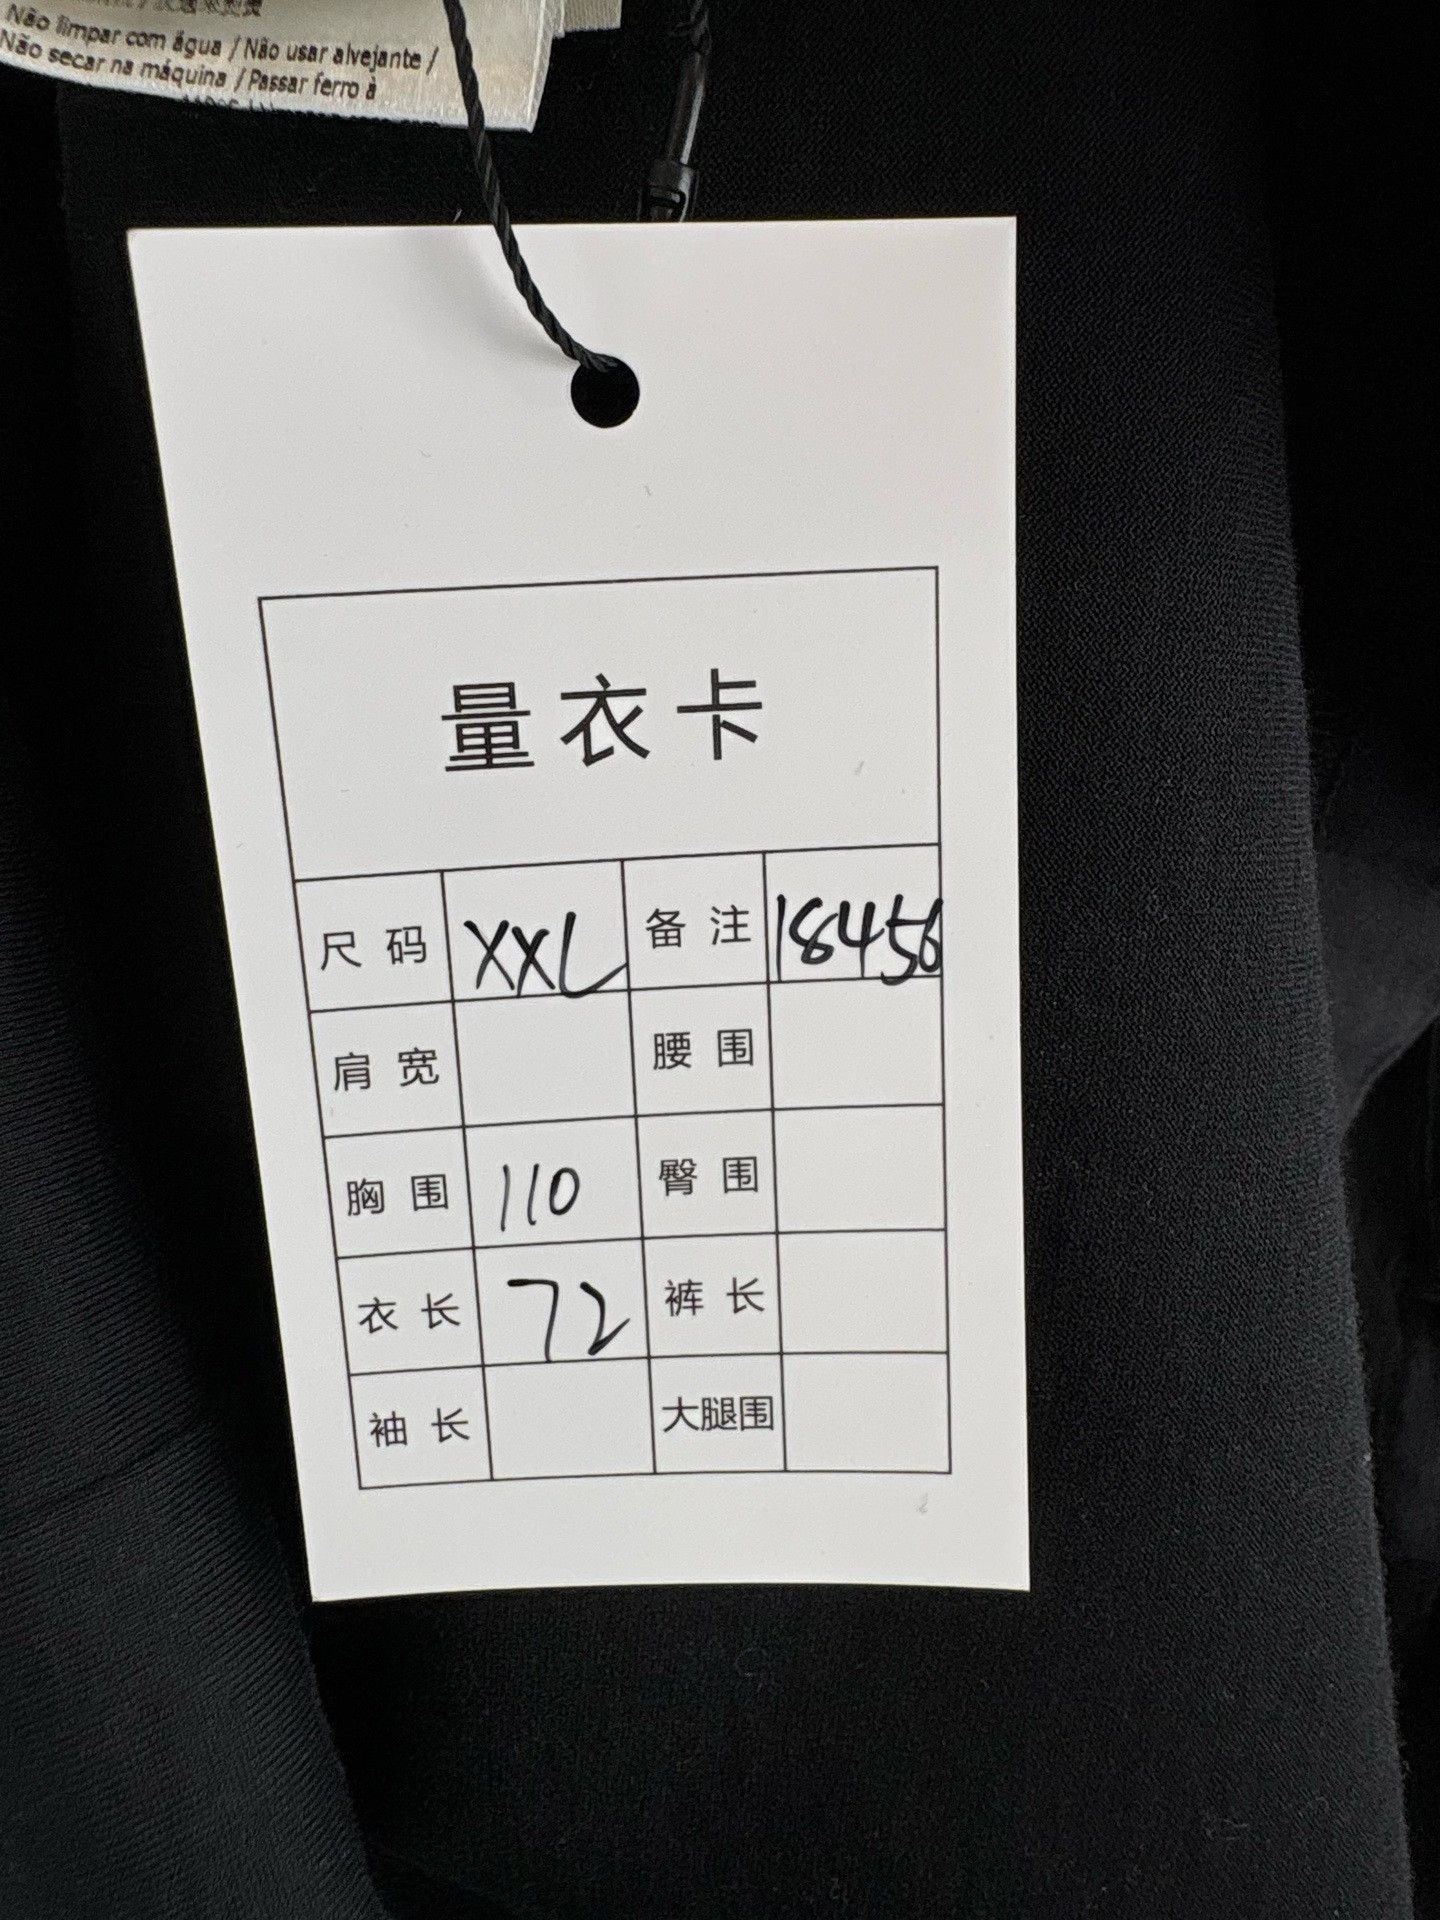 Não limpar com água / Não usar alvejante /
Não secar na máquina / Passar ferro à
量衣卡
尺码 XXL 备注 18456
肩宽 腰围
胸围 110 臀围
衣长 72 裤长
袖长 大腿围